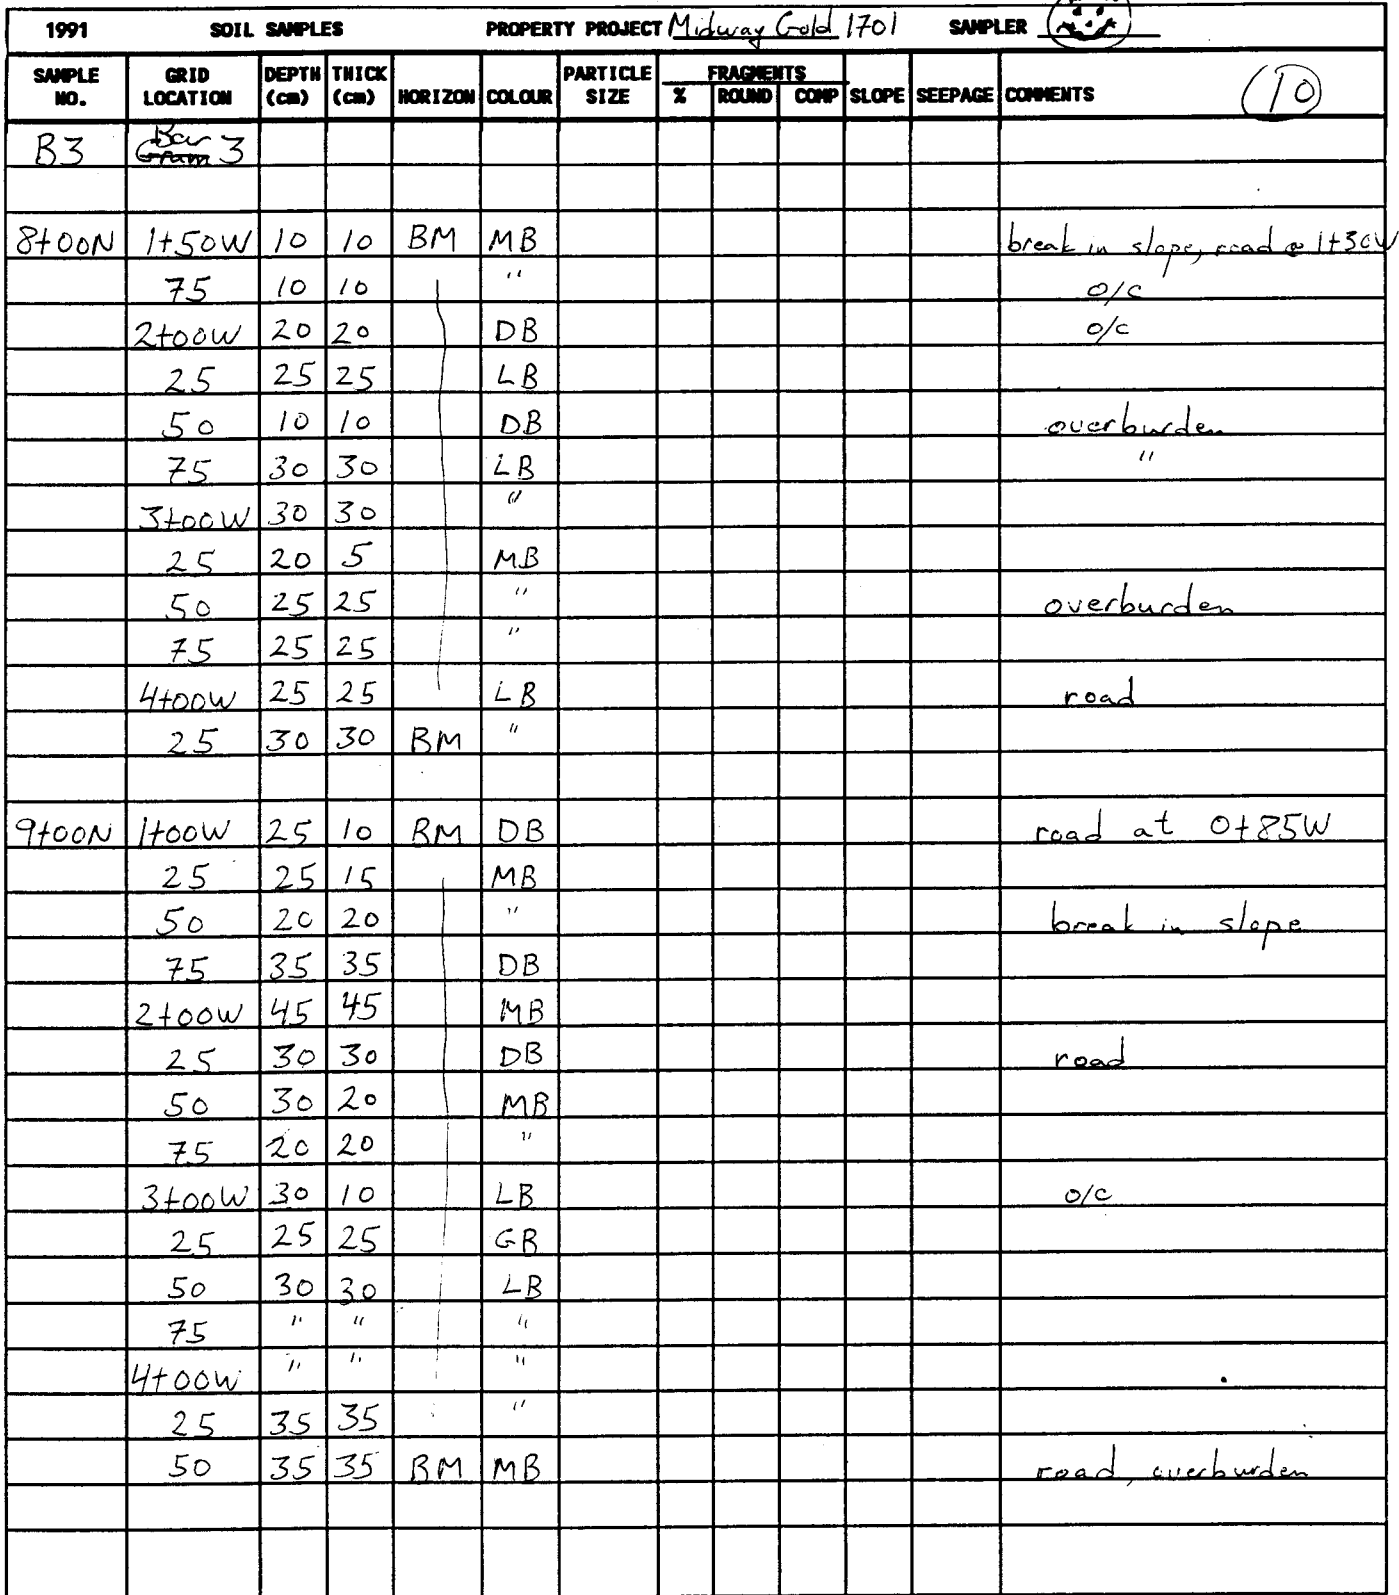 1991 SOIL SAMPLES PROPERTY PROJECT Midway Gold 1701 SAMPLER
SAMPLE NO. GRID LOCATION DEPTH (cm) THICK (cm) HORIZON COLOUR PARTICLE SIZE FRAGMENTS % ROUND COMP SLOPE SEEPAGE COMMENTS 10
B3 Bar 3
8+00N 1+50W 10 10 BM MB break in slope, road @ 1+30W
75 10 10 " o/c
2+00W 20 20 DB o/c
25 25 25 LB
50 10 10 DB overburden
75 30 30 LB "
3+00W 30 30 "
25 20 5 MB
50 25 25 " overburden
75 25 25 "
4+00W 25 25 LB road
25 30 30 BM "
9+00N 1+00W 25 10 BM DB road at 0+85W
25 25 15 MB
50 20 20 " break in slope
75 35 35 DB
2+00W 45 45 MB
25 30 30 DB road
50 30 20 MB
75 20 20 "
3+00W 30 10 LB o/c
25 25 25 GB
50 30 30 LB
75 " " "
4+00W " " "
25 35 35 "
50 35 35 BM MB road, overburden